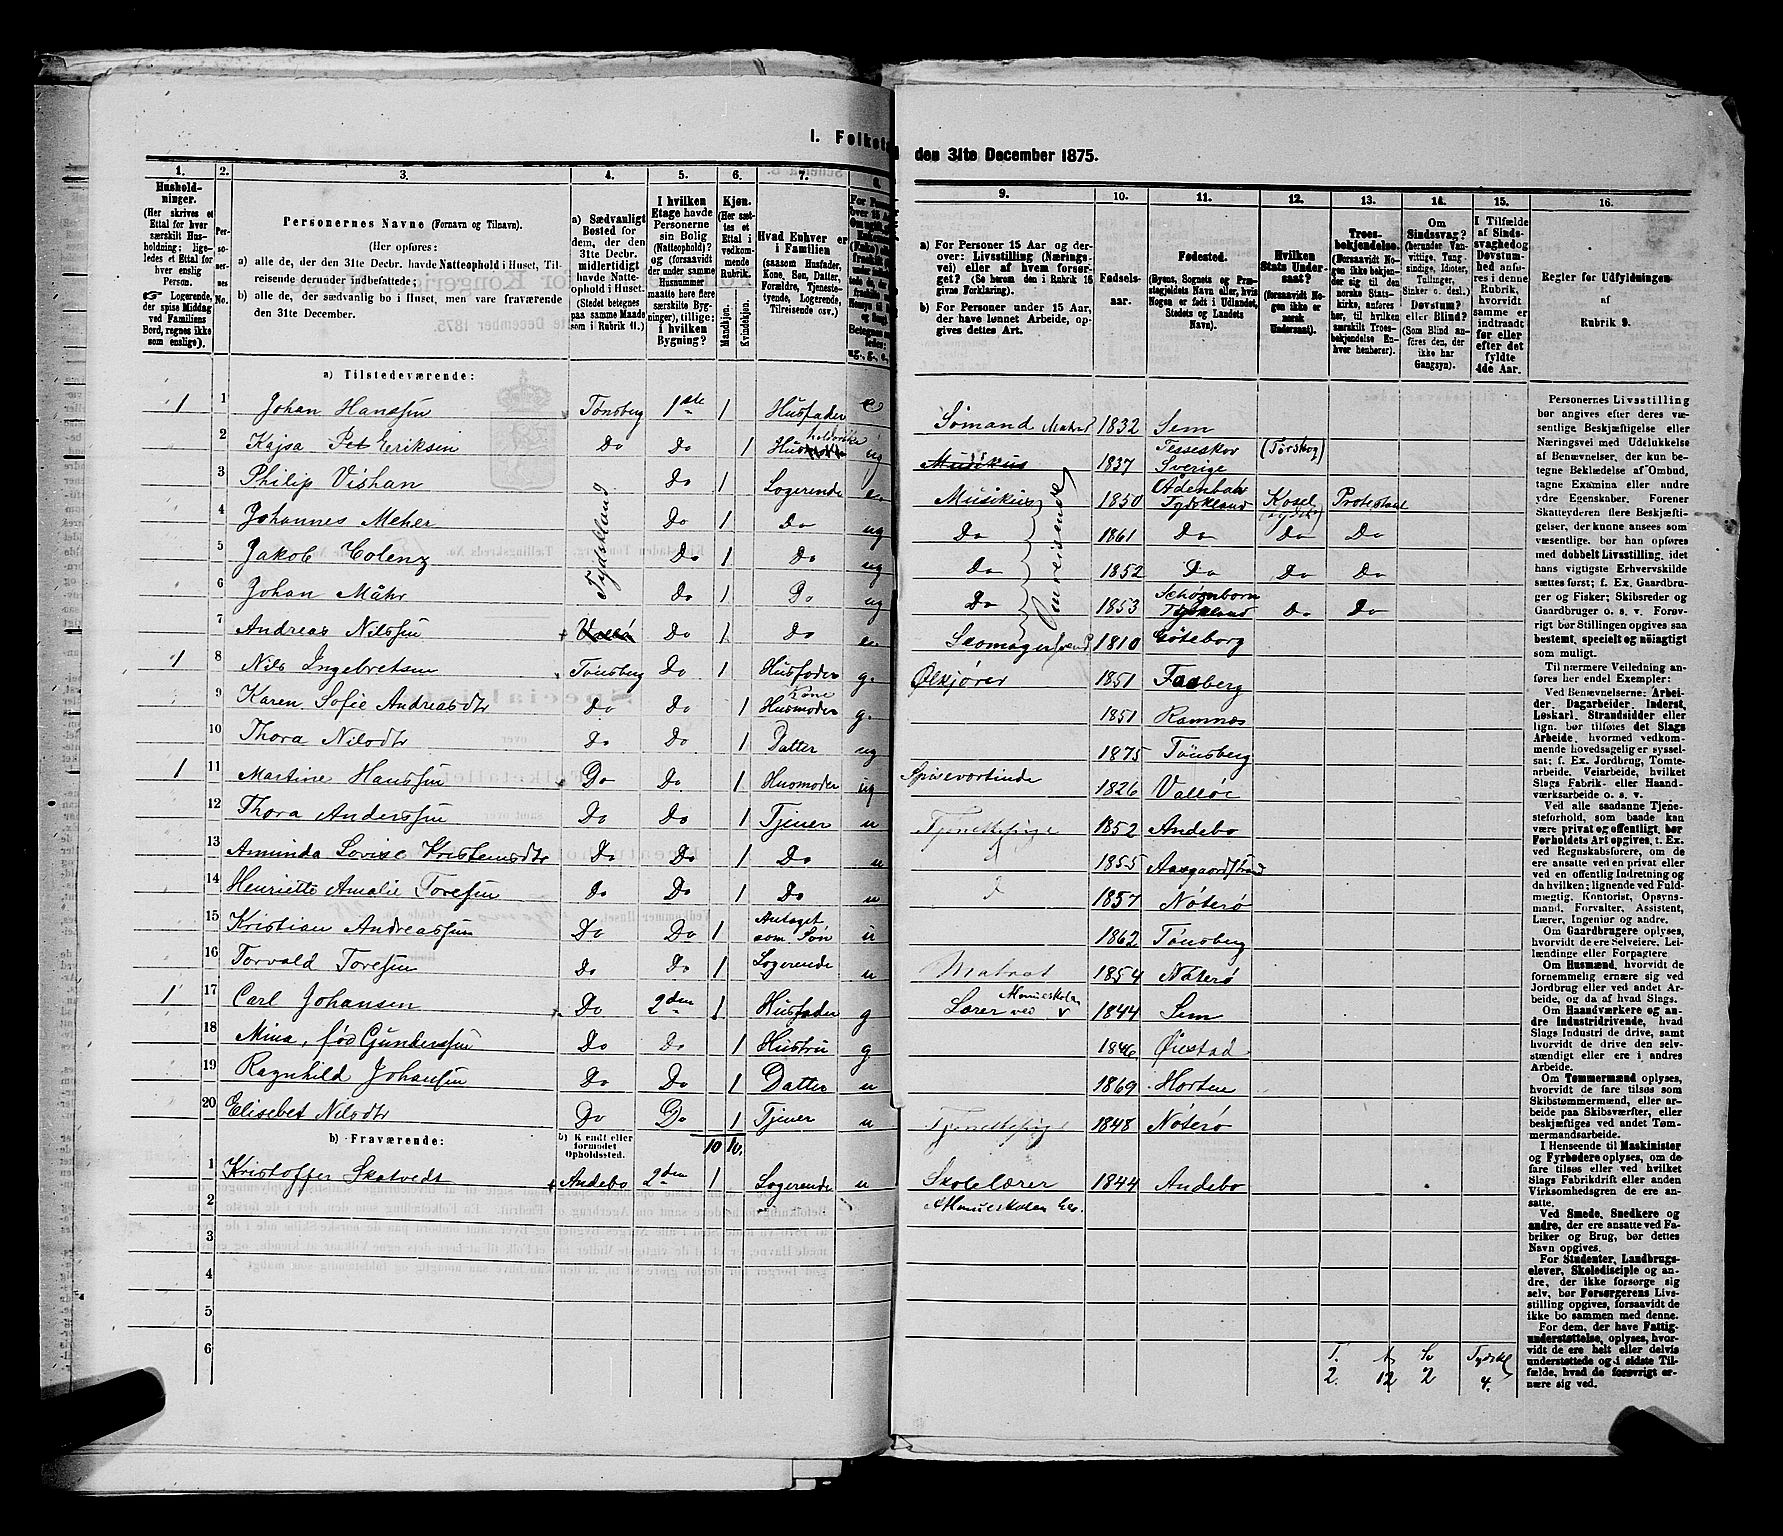 I. Folketæ
den 31te December 1875.
1.
2.
3.
4.
5.
6.
7.
8.
9.
10.
11.
12.
13.
14.
15.
16.
Hushold-
ninger.
(Her skrives et
Ettal for hver
særskilt Hus-
holdning; lige-
ledes et Ettal for
hver enslig
Person.
☞ Logerende,
der spise Middag
ved Familiens
Bord, regnes ikke
som enslige).
Per-
so-
ner-
nes
No.
Personernes Navne (Fornavn og Tilnavn).
(Her opføres:
a) alle de, der den 31te Decbr. havde Natteophold i Huset, Til-
reisende derunder indbefattede;
b) alle de, der sædvanlig bo i Huset, men vare fraværende
den 31te December.
a) Sædvanligt
Bosted for
dem, der den
31te Decbr.
midlertidigt
havde Natte-
ophold i Huset.
(Stedet betegnes
paa samme Maade
som i Rubrik 11.)
I hvilken
Etage havde
Personerne
sin Bolig
(Natteophold)?
(forsaavidt
der under samme
Husnummer
maatte høre flere
særskilte Byg-
ninger), tillige:
i hvilken
Bygning?
Kjøn.
(Her sæt-
tes et
Ettal i
vedkom-
mende
Rubrik.
Mandkjøn.
Kvindekjøn.
Hvad Enhver er
i Familien
(saasom Husfader,
Kone, Søn, Datter,
Forældre, Tjeneste-
tyende, Logerende,
Tilreisende osv.)
a) For Personer 15 Aar og der-
over: Livsstilling (Nærings-
vei) eller af hvem forsør-
get? (Se herom den i Rubrik 16
givne Forklaring.)
b) For Personer under 15 Aar,
der have lønnet Arbeide, op-
gives dettes Art.
Fødsels-
aar.
Fødested.
(Byens, Sognets og Præ-
stegjeldets Navn eller, hvis
Nogen er født i Udlandet,
Stedets og Landets
Navn).
Hvilken
Stats Under-
saat?
(forsaavidt No-
gen ikke er
norsk
Undersaat).
Troes-
bekjendelse.
(Forsaavidt No-
gen ikke bekjen-
der sig til den
norske Stats-
kirke, anføres
her, til hvilken
særskilt Troes-
bekjendelse En-
hver henhører).
Om
Sindssvag?
(herunder Van-
vittige, Tung-
sindige, Idioter,
Tullinger,
Sinker o. desl.)
Døvstum?
eller Blind?
(Som Blind an-
føres den, der
ikke har
Gangsyn).
I Tilfælde
af Sinds-
svaghed og
Døvstum-
hed anfø-
res i denne
Rubrik,
hvorvidt
samme er
indtraadt
før eller
efter det
fyldte
4de Aar.
Regler for Udfyldningen
af
Rubrik 9.
a) Tilstedeværende:
1 1 Johan Hanssen Tønsberg 1ste 1 Husfader e Sømand Matros 1832 Sem
2 Kajsa Pet Eriksen Do Do 1 Husholderske ug Musikus 1837 Tesseskov Sverige (Torskog)
3 Philip Vishan Tydskland Do 1 Logerende e Musikus Omreisende 1850 Odenbach Tydskland Kosel (tydsk) Protestant
4 Johannes Meher Do 1 Do ug Do 1861 Do Do Do
5 Jakob Colenz Do 1 Do ug Do 1852 Do Do Do
6 Johan Måhr Do 1 Do ug Do 1853 Schønborn Tydskland Do Do
7 Andreas Nilssen Vallø Do 1 Do e Skomagersvend 1810 Gøteborg
1 8 Nils Ingebretsen Tønsberg Do 1 Husfader g. Ølkjører 1851 Faaberg
9 Karen Sofie Andreasdtr Do Do 1 Kone Husmoder g. 1851 Ramnæs
10 Thora Nilsdtr Do Do 1 Datter ug 1875 Tønsberg
1 11 Martine Hanssen Do Do 1 Husmoder ug Spisevertinde 1826 Valløe
12 Thora Anderssen Do Do 1 Tjener u Tjenestepige 1852 Andebo
13 Aminda Lovise Kristensdtr Do Do 1 Do u d 1855 Aasgaardstrand
14 Henriette Amalie Toresen Do Do 1 Do u d 1857 Nøterø
15 Kristian Andreassen Do Do 1 Antaget som Søn u 1862 Tønsberg
16 Torvald Toresen Do Do 1 Logerende u Matros 1854 Nøterø
1 17 Carl Johansen Do 2den 1 Husfader g Lærer ved Almueskolen 1844 Sem
18 Mina, fød Gunderssen Do Do 1 Hustru g 1846 Øiestad
19 Ragnhild Johansen Do Do 1 Datter u 1869 Horten
20 Elisebet Nilsdtr Do Do 1 Tjener u Tjenestepige 1848 Nøterø
b) Fraværende:
b) Kendt eller
formodet
Opholdssted.
10 10.
1 Kristoffer Skatvedt Andebo 2den 1 Logerende u Skolelærer 1844 Andebo
2 Almueskolen
3
4
5
6
T. A So Tydskl
2. 12 2 4.
Personernes Livsstilling
bør angives efter deres væ-
sentlige Beskjæftigelse eller
Næringsvei med Udelukkelse
af Benævnelser, der kun be-
tegne Beklædelse af Ombud,
tagne Examina eller andre
ydre Egenskaber. Forener
Skatteyderen flere Beskjæfti-
gelser, der kunne ansees som
væsentlige, bør han opføres
med dobbelt Livsstilling, idet
hans vigtigste Erhvervskilde
sættes først; f. Ex. Gaardbru-
ger og Fisker; Skibsreder og
Gaardbruger o. s. v. Forøv-
rigt bør Stillingen opgives saa
bestemt, specielt og nøiagtigt
som muligt.
Til nærmere Veiledning an-
føres her endel Exempler:
Ved Benævnelserne: Arbei-
der, Dagarbeider, Inderst,
Løskarl, Strandsidder eller
lign. bør tilføies det Slags
Arbeide, hvormed vedkom-
mende hovedsagelig er syssel-
sat; f. Ex. Jordbrug, Tomte-
arbeide, Veiarbeide, hvilket
Slags Fabrik- eller Haand-
værksarbeide o. s. v.
Ved alle saadanne Tjene-
steforhold, som baade kan
være privat og offentligt, bør
Forholdets Art opgives, t. Ex.
ved Regnskabsførere, om de
ere ansatte ved en privat eller
ved en offentlig Indretning og
da hvilken; lignende ved Fuld-
mægtig, Kontorist, Opsyns-
mand, Forvalter, Assistent,
Lærer, Ingeniør og andre.
Om Gaardbrugere oplyses,
hvorvidt de ere Selveiere, Lei-
lændinge eller Forpagtere
Om Husmænd, hvorvidt de
fornemmelig ernære sig ved
Jordbrug eller ved andet Ar-
beide, og da af hvad Slags.
Om Haandværkere og an-
dre Industridrivende, hvad
Slags Industri de drive, samt
hvorvidt de drive den selv-
stændigt eller ere i andres
Arbeide.
Om Tømmermænd oplyses,
hvorvidt de fare tilsøs som
Skibstømmermænd, eller ar-
beide paa Skibsværfter, eller
beskjæftiges ved andet Tøm-
mermandsarbeide.
I Henseende til Maskinister
og Fyrbødere oplyses, om de
fare tilsøs eller ved hvilket
Slags Fabrikdrift eller anden
Virksomhedsgren de ere an-
satte.
Ved Smede, Snedkere og
andre, der ere ansatte ved Fa-
briker og Brug, bør dettes
Navn opgives.
For Studenter, Landbrugs-
elever, Skoledisciple og an-
dre, der ikke forsørge sig
selv, bør Forsørgerens Livs-
stilling opgives, forsaavidt de
ikke bo sammen med denne.
For dem, der have Fattig-
understøttelse, oplyses, hvor-
vidt de ere helt eller delvis
understøttede og i sidste Til-
fælde, hvad de forøvrigt er-
nære sig ved.